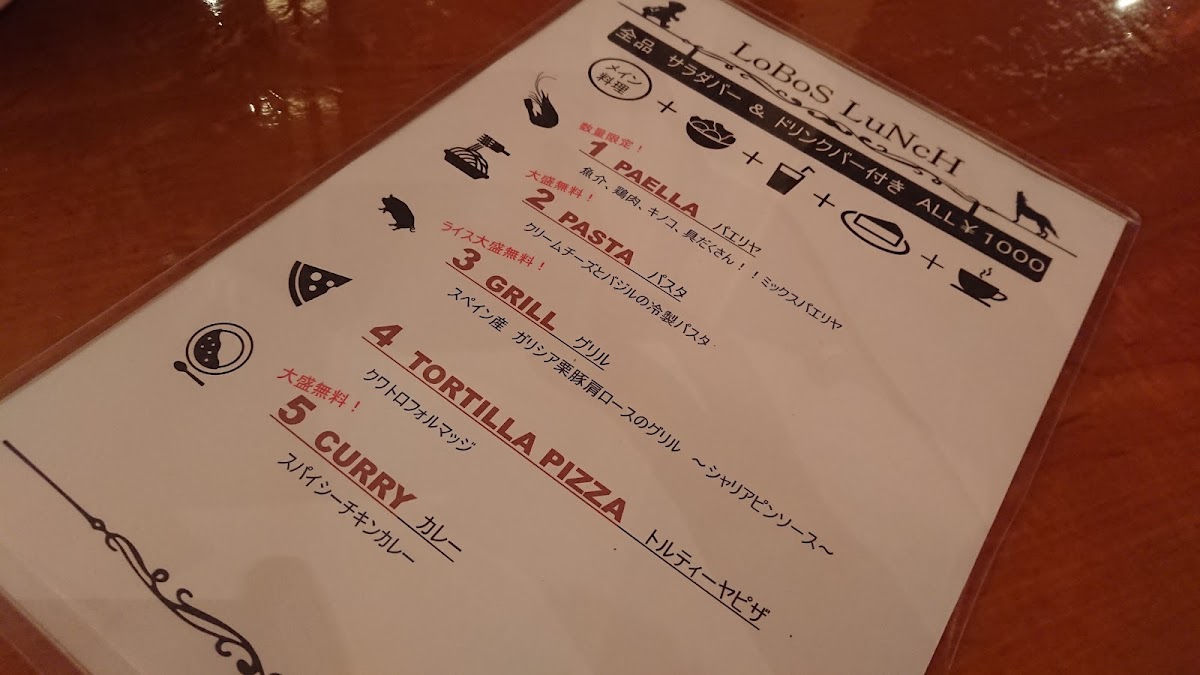 LoBoS LuNcH
全品 サラダバー & ドリンクバー付き ALL¥1000
メイン
料理
+ + + +
数量限定!
1 PAELLA パエリヤ
魚介、鶏肉、キノコ、具だくさん!!ミックスパエリヤ
大盛無料!
2 PASTA パスタ
クリームチーズとバジルの冷製パスタ
ライス大盛無料!
3 GRILL グリル
スペイン産 ガリシア栗豚肩ロースのグリル ~シャリアピンソース~
4 TORTILLA PIZZA トルティーヤピザ
クワトロフォルマッジ
大盛無料!
5 CURRY カレー
スパイシーチキンカレー